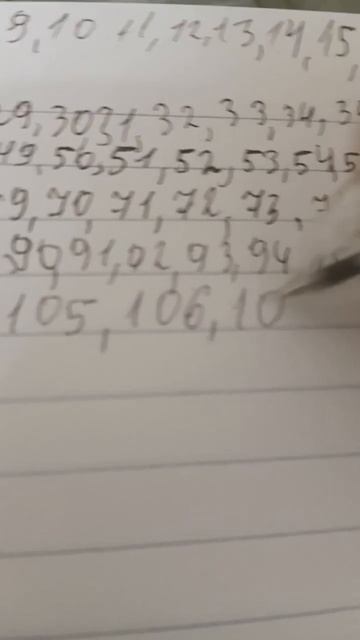 9, 10 11, 12, 13, 14, 15,
29, 30, 31, 32, 33, 34, 3
49, 50, 51, 52, 53, 54, 5
9, 70, 71, 72, 73, 7
90, 91, 92, 93, 94
105, 106, 10